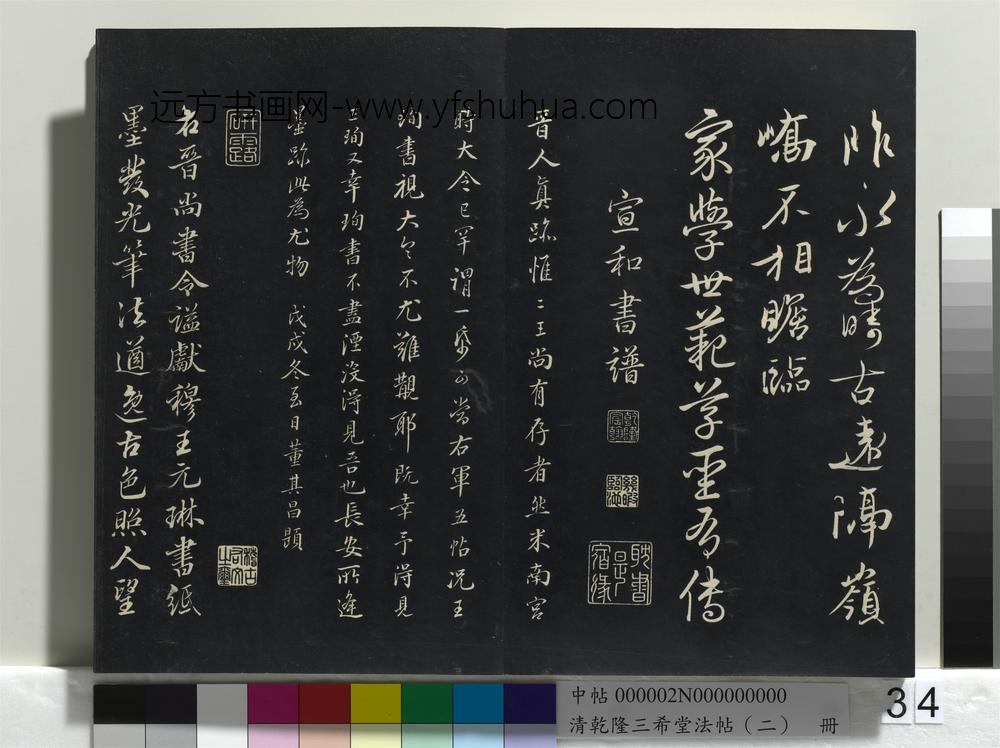 昨永為疇古遠隔嶺
嶠不相瞻臨
家學世範草聖有傳
宣和書譜
乾隆宸翰
耽書是宿緣
晉人真跡惟二王尚有存者然米南宮
時大令已罕謂一帋可當右軍五帖況王
珣書視大令不尤難覯耶既幸予得見
王珣又幸珣書不盡湮沒得見吾也長安所逢
墨跡此為尤物 戊戌冬至日董其昌題
研露
稽古右文之璽
右晉尚書令謚獻穆王元琳書紙
墨發光筆法遒逸古色照人望
远方书画网-www.yfshuhua.com
中帖 000002N000000000
清乾隆三希堂法帖（二） 冊
34